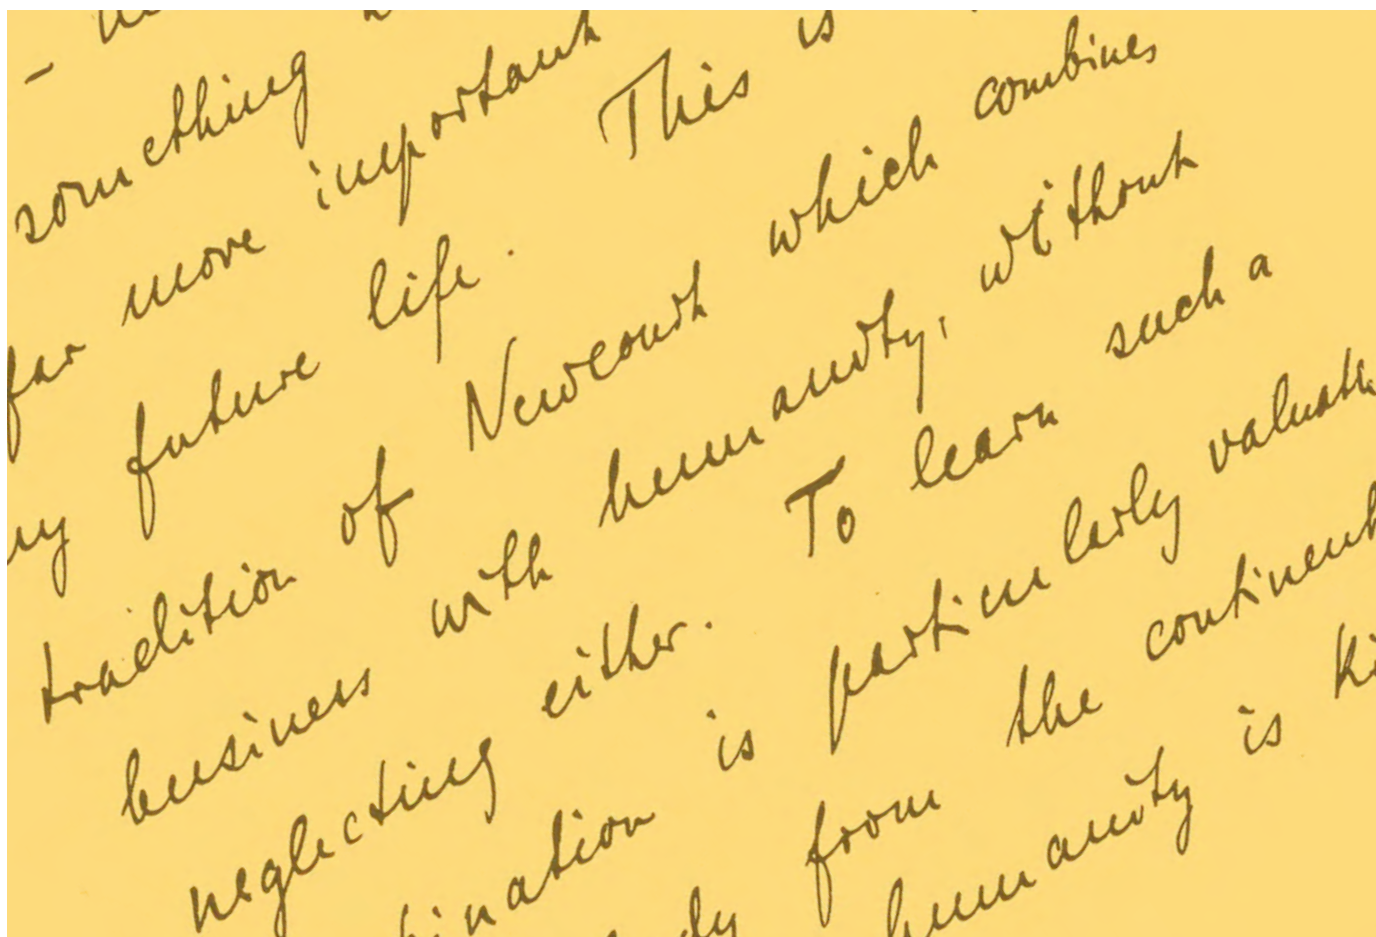 something
far more important
my future life. This is
tradition of Newcourt which combines
business with humanity, without
neglecting either. To learn such a
bination is particularly valuable
dy from the continent
humanity is ki